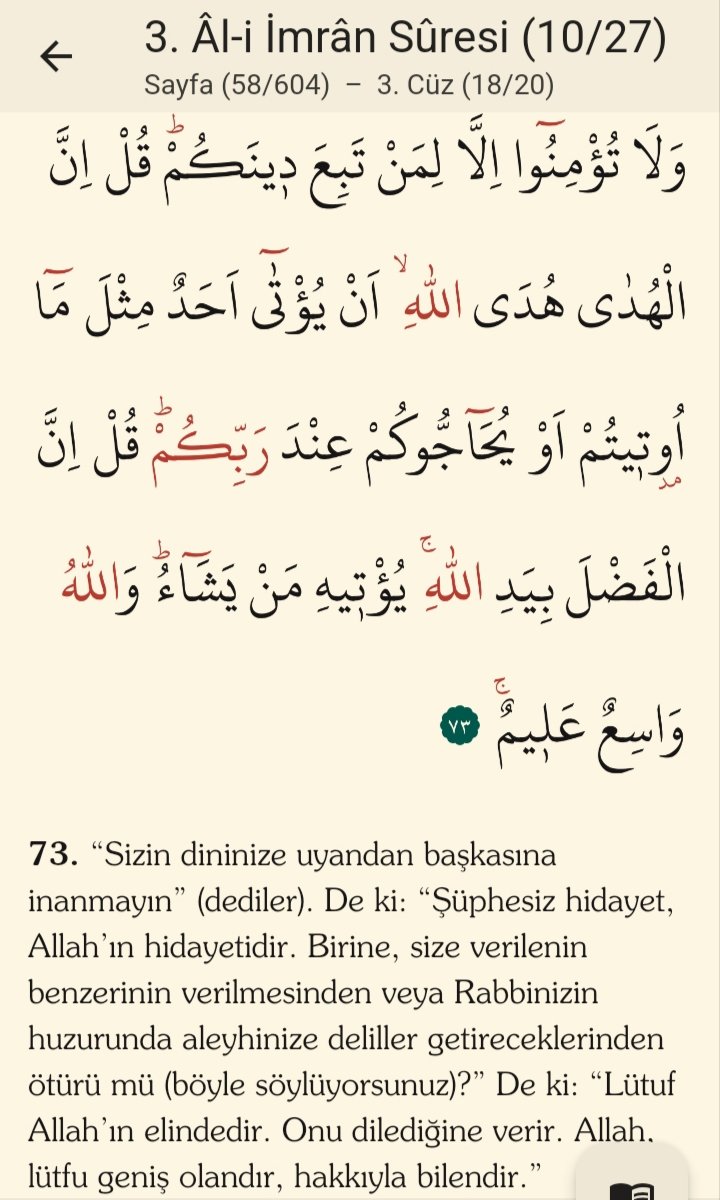 3. Âl-i İmrân Sûresi (10/27)
Sayfa (58/604) – 3. Cüz (18/20)
وَلَا تُؤْمِنُٓوا اِلَّا لِمَنْ تَبِعَ د۪ينَكُمْۜ قُلْ اِنَّ
الْهُدٰى هُدَى اللّٰهِۙ اَنْ يُؤْتٰٓى اَحَدٌ مِثْلَ مَٓا
اُو۫ت۪يتُمْ اَوْ يُحَٓاجُّوكُمْ عِنْدَ رَبِّكُمْۜ قُلْ اِنَّ
الْفَضْلَ بِيَدِ اللّٰهِۚ يُؤْت۪يهِ مَنْ يَشَٓاءُۜ وَاللّٰهُ
وَاسِعٌ عَل۪يمٌۚ ٧٣
73. “Sizin dininize uyandan başkasına
inanmayın” (dediler). De ki: “Şüphesiz hidayet,
Allah’ın hidayetidir. Birine, size verilenin
benzerinin verilmesinden veya Rabbinizin
huzurunda aleyhinize deliller getireceklerinden
ötürü mü (böyle söylüyorsunuz)?” De ki: “Lütuf
Allah’ın elindedir. Onu dilediğine verir. Allah,
lütfu geniş olandır, hakkıyla bilendir.”